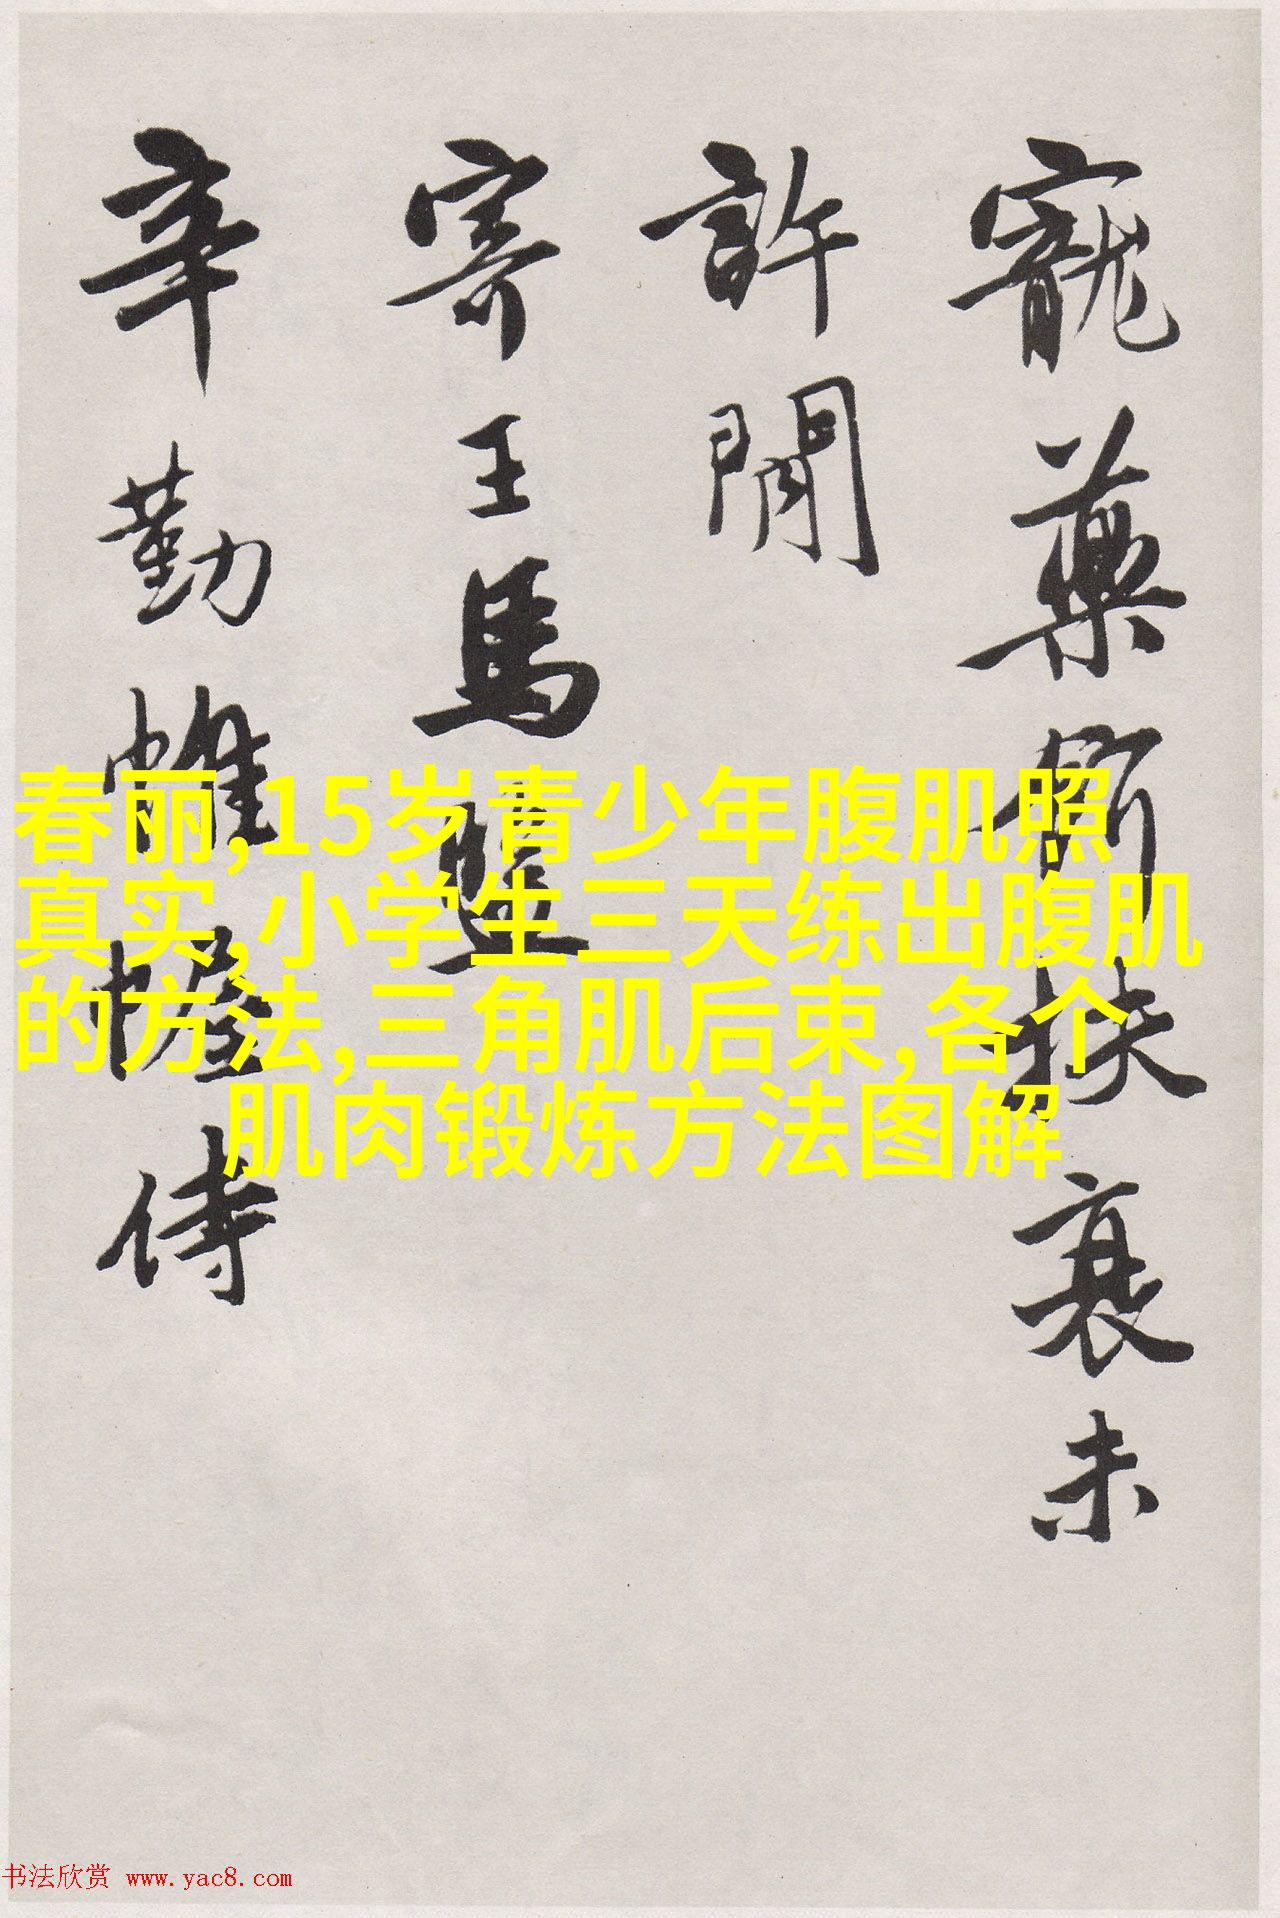 寵藥扶衰未
許閒
寄王馬監
辛勤帷幄侍
春丽,15岁青少年腹肌照
真实,小学生三天练出腹肌
的方法,三角肌后束,各个
肌肉锻炼方法图解
书法欣赏 www.yac8.com